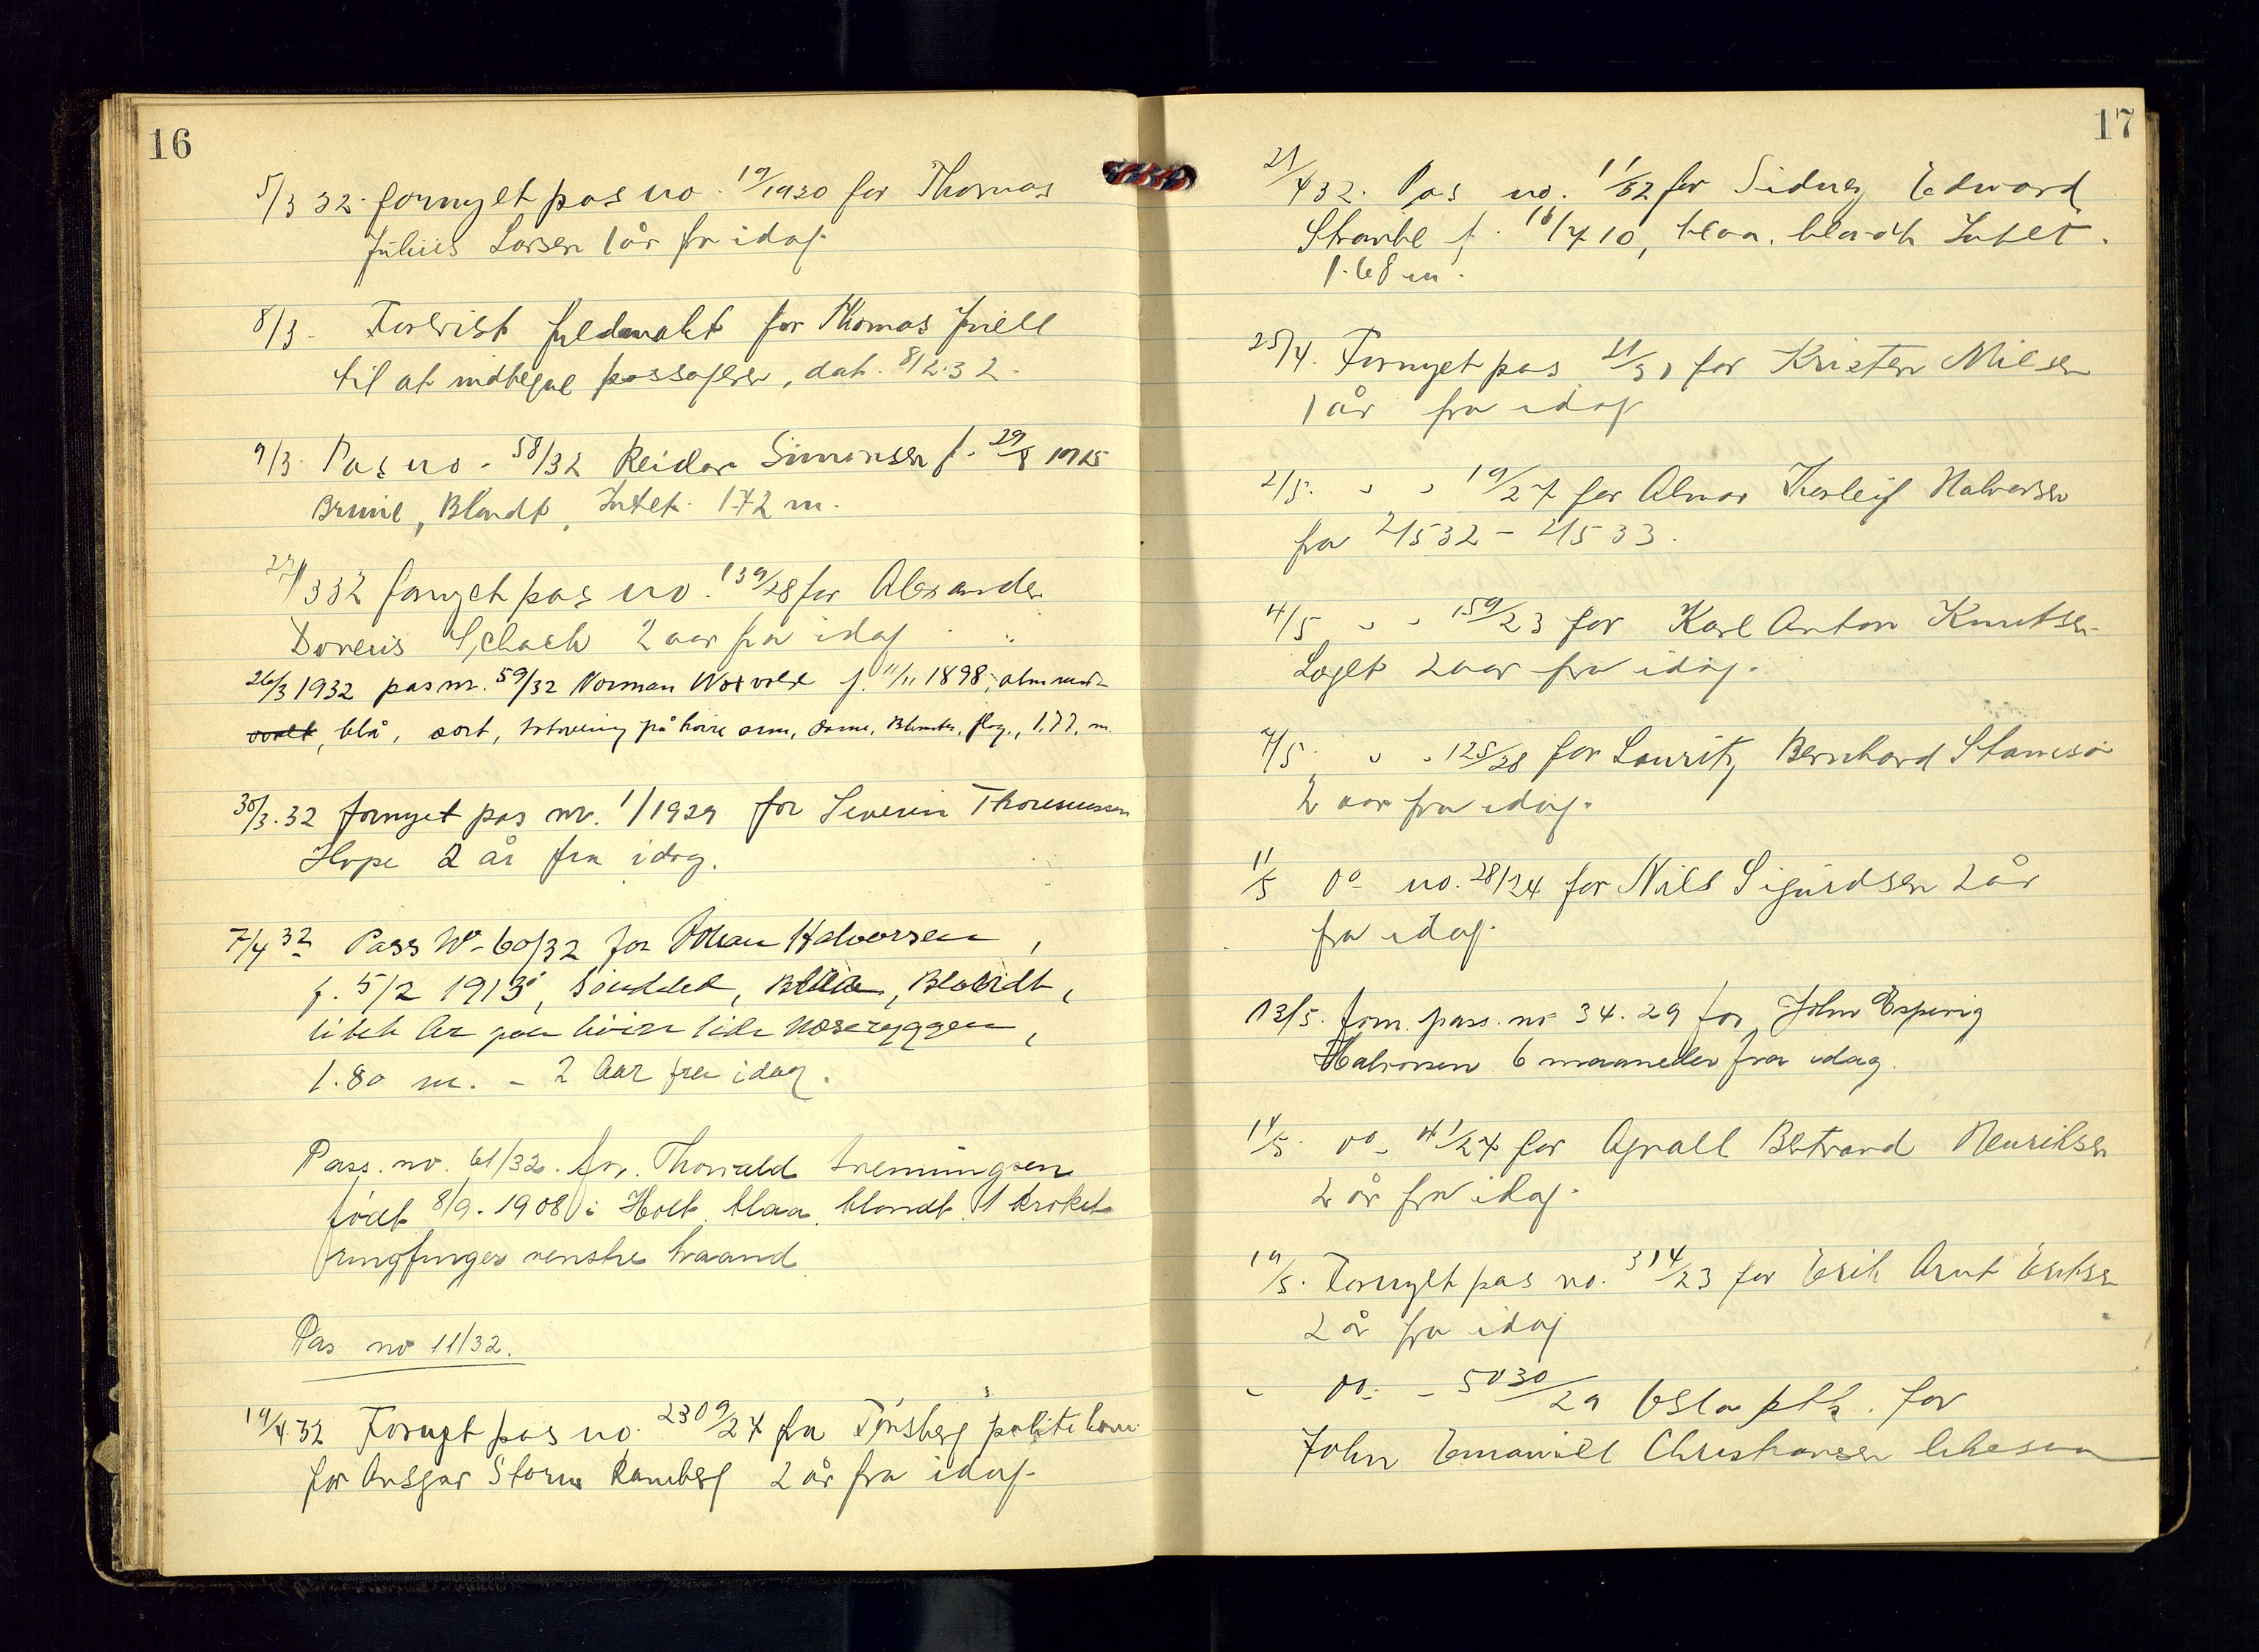 16
5/3 32. fornyet pas no. 19/1930 for Thomas
Julius Larsen 1 år fra idag.
8/3. fuldmakt for Thomas Juell
til at indtegne passagerer, dat. 8/2.32.
9/3. Pas no. 58/32 Reidar Simonsen f. 29/8 1915
Brune, Blondt, Intet. 172 m.
/3 32 fornyet pas no. 139/28 for Alexander
Doreus Schach 2 aar fra idag
26/3 1932 pas nr. 59/32 Norman f. 11/11 1898,
ovalt, blå, sort, tatovering på høire arm, dame, Blomster, flag., 1.77. m.
30/3.32 fornyet pas nr. 1/1929 for Severin Thomassen
Hope 2 år fra idag.
7/4 32 Pass No. 60/32 for Johan Halvorsen,
f. 5/2 1913, Søndeled, Blaa, Blondt,
litet Ar paa høire side Næseryggen,
1.80 m. - 2 Aar fra idag.
Pass. no. 61/32. for. Thorvald
født 8/9. 1908 i Holt. blaa. blondt. 1 kroket
ringfinger venstre haand
Pas no 11/32.
19/4 32 Fornyet pas no. 2309/27 fra Tønsberg politikam
for Ansgar Storm Ramberg 2 år fra idag.
17
21/4 32. Pas no. 11/32 for Sidney Edward
f. 16/7 10, blaa. blondt Intet.
1.68 m.
25/4. Fornyet pas 21/31 for Kristen Nilsen
1 år fra idag
2/5. " " 19/27 for Almar Torleif Halvorsen
fra 2/5 32 - 2/5 33.
4/5 " " 159/23 for Karl Anton Knutsen
2 aar fra idag.
7/5. " " 125/28 for Lauritz Bernhard Stamsø
2 aar fra idag.
11/5 do no. 28/24 for Nils Sigurdsen 2 år
fra idag.
13/5. forn. pass. no 34. 29 for John Espering
Halvorsen 6 maaneder fra idag.
14/5. do - 41/27 for Agvall Bertrand Henriksen
2 år fra idag.
19/5. Fornyet pas no. 314/23 for Erik Arnt Eriksen
2 år fra idag
- do - - 5030/29 Oslo ptk. for
John Emanuel Christiansen likesaa